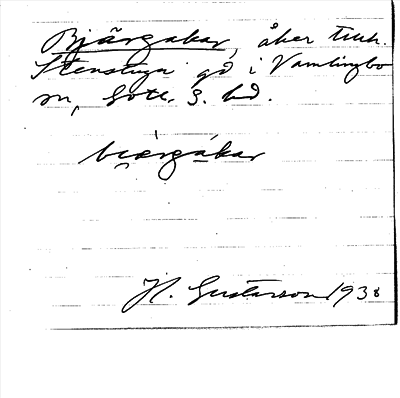 Bjärgakar, åker tillh.
Stenstuga gd i Vamlingbo
sn, Gotl. S. hd.
biærgakar
H. Gustavson 1938